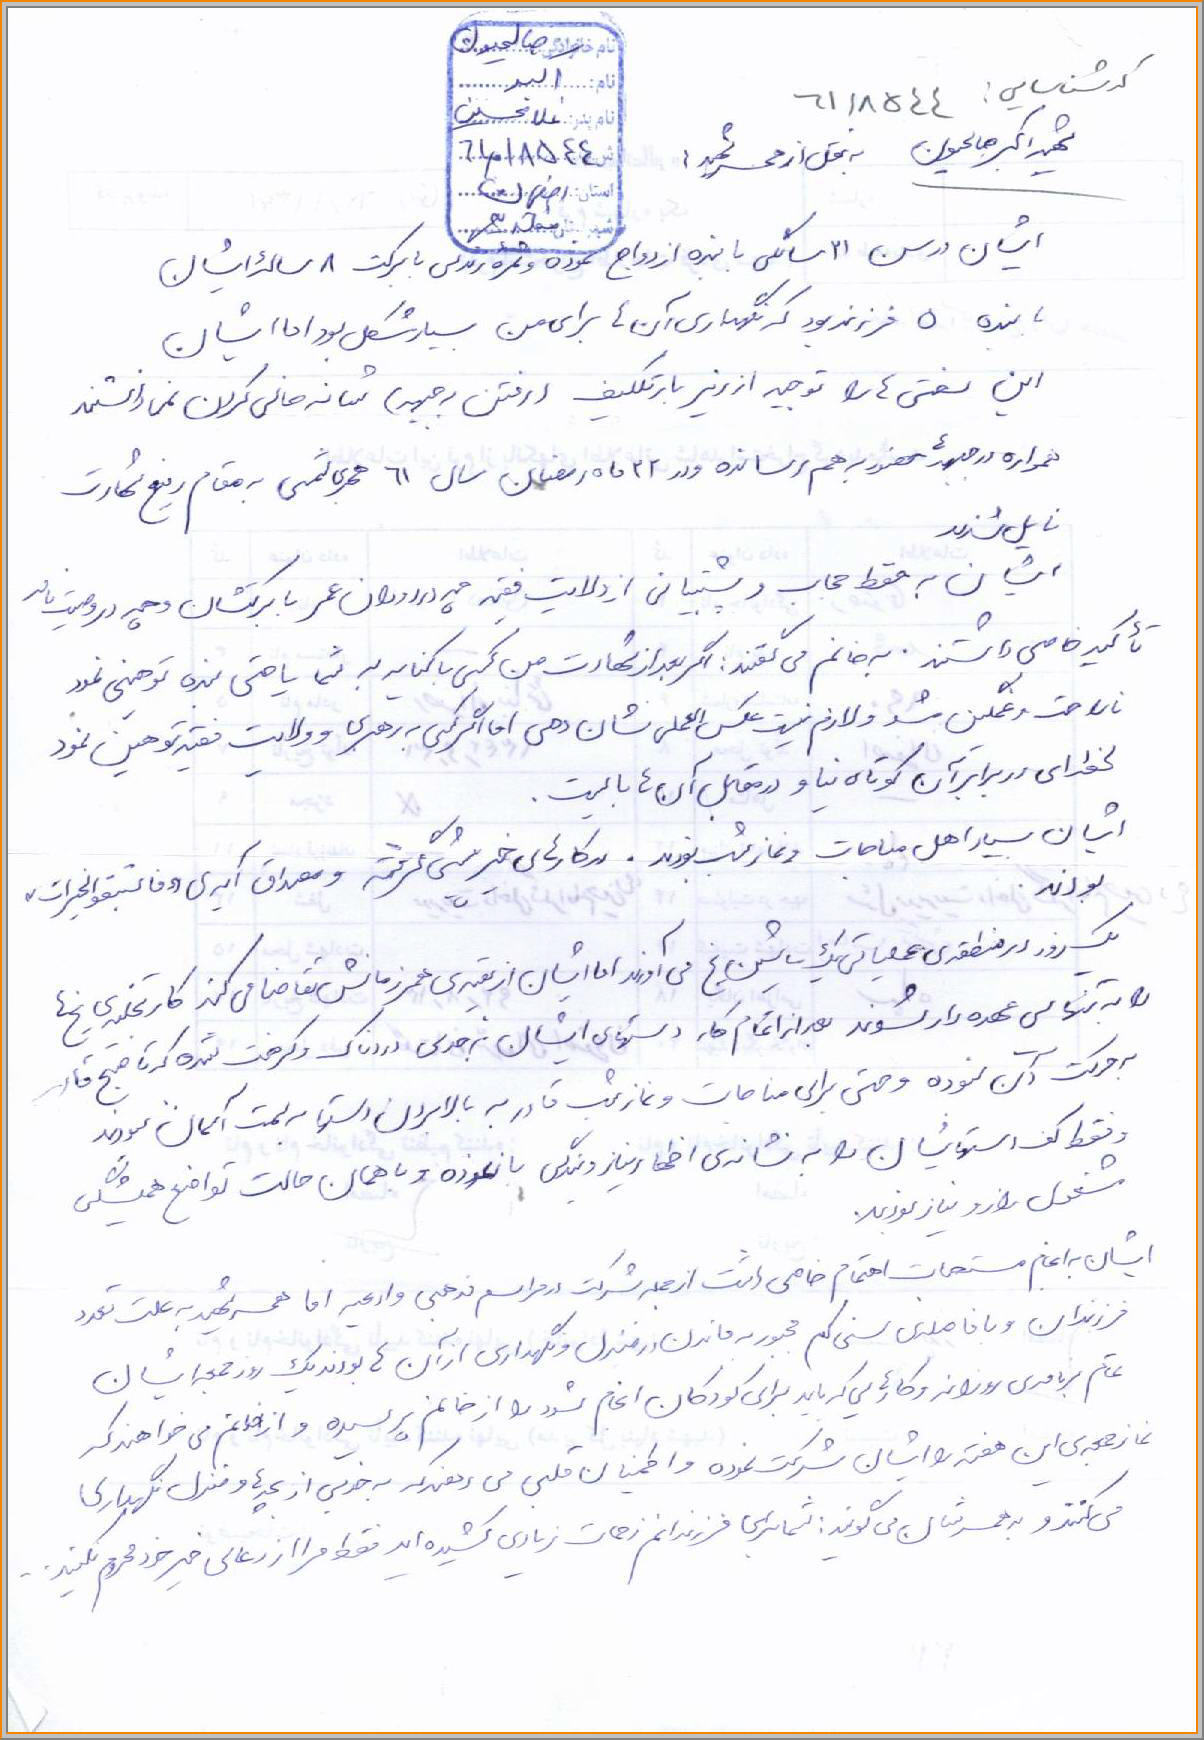 نام خانوادگی: صالحیون
نام: اکبر
نام پدر: غلامحسین
۶۱۱۸۵۴۴
استان: اصفهان
کد شناسایی: ۶۱۱۸۵۴۴
شهید اکبر صالحیون به نقل از همسر شهید:
ایشان در سن ۲۱ سالگی با بنده ازدواج نموده و ثمره زندگی با برکت ۸ ساله ایشان
با بنده ۵ فرزند بود که نگهداری آن ها برای من بسیار مشکل بود اما ایشان
این سختی ها را توجیه از زیر بار تکلیف (رفتن به جبهه) شانه خالی کردن نمی دانستند
همواره در جبهه ها حضور به هم رسانده و در ۲۲ ماه رمضان سال ۶۱ هجری شمسی به مقام رفیع شهادت
نایل شدند
ایشان به حفظ حجاب و پشتیبانی از ولایت فقیه چه در دوران عمر با برکتشان و چه در وصیت نامه
تأکید خاصی داشتند. به خانم می گفتند: اگر بعد از شهادت من کسی با کنایه به شما یا حتی بنده توهینی نمود
ناراحت و غمگین مشو و لازم نیست عکس العملی نشان دهی اما اگر کسی به رهبری و ولایت فقیه توهین نمود
لحظه ای در برابر آن کوتاه نیا و در مقابل آن ها بایست.
ایشان بسیار اهل مناجات و نماز شب بودند. در کارهای خیر پیشی گرفته و مصداق آیه ی «فاستبقوا الخیرات»
بودند.
یک روز در منطقه ی عملیاتی یک ماشین یخ می آورند اما ایشان از بقیه ی همرزمانش تقاضا می کند کار تخلیه ی یخ ها
را به تنهایی عهده دار شوند بعد از اتمام کار دستهای ایشان به حدی دردناک و کرخت شده که تا صبح قادر
به حرکت آن نبوده و حتی برای مناجات و نماز شب قادر به بالا بردن دستها به سمت آسمان نبودند
و فقط کف دستهایشان را به نشانه ی اظهار نیاز و بندگی باز نموده و با همان حالت تواضع همیشگی
مشغول راز و نیاز بودند.
ایشان به انجام مستحبات اهتمام خاصی داشت از جمله شرکت در مراسم مذهبی و ادعیه اما همسر شهید به علت تعدد
فرزندان و با فاصله ی سنی کم مجبور به ماندن در منزل و نگهداری از آن ها بودند یک روز جمعه ایشان
تمام برنامه ی روزانه و کارهایی که باید برای کودکان انجام شود را از خانم پرسیده و از خانم می خواهند که
نماز جمعه ی این هفته را ایشان شرکت نموده و اطمینان قلبی می دهند که به خوبی از بچه ها و منزل نگهداری
می کنند و به همسرشان می گویند: شما برای فرزندانم زحمات زیادی کشیده اید فقط مرا از دعای خیر خود محروم نکنید...